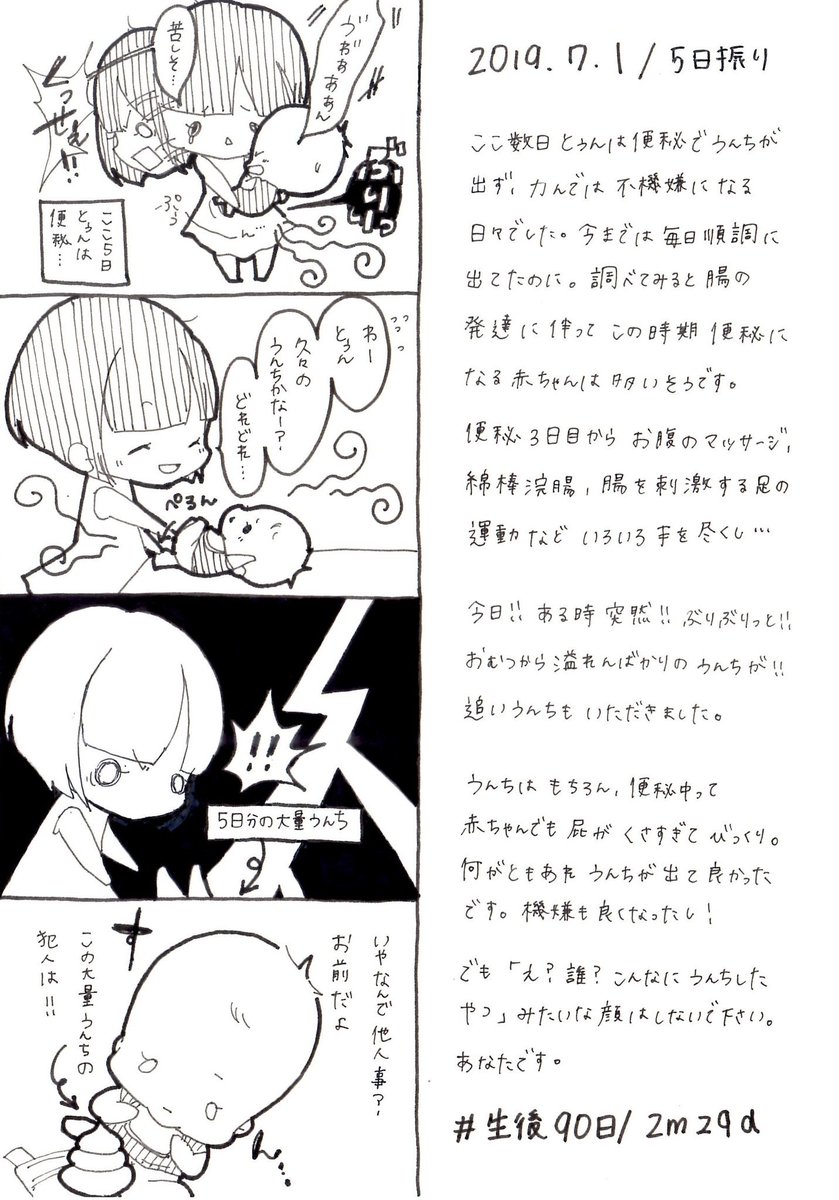 ゔぉぁぁああん
苦しそ…
くっせぇ!!
ぶりりりっ
ぷぅ
ここ5日
とぅんは
便秘…
わー
とぅん
久々の
うんちかなー?
どれどれ…
ぺろん
!!
5日分の大量うんち
いやなんで他人事?
お前だよ
この大量うんちの
犯人は!!
す
ん…
2019.7.1/5日振り
ここ数日とぅんは便秘でうんちが
出ず、力んでは不機嫌になる
日々でした。今までは毎日順調に
出てたのに。調べてみると腸の
発達に伴ってこの時期便秘に
なる赤ちゃんは多いそうです。
便秘3日目からお腹のマッサージ,
綿棒浣腸,腸を刺激する足の
運動などいろいろ手を尽くし…
今日!!ある時突然!!ぶりぶりっと!!
おむつから溢れんばかりのうんちが!!
追いうんちもいただきました。
うんちはもちろん,便秘中って
赤ちゃんでも屁がくさすぎてびっくり。
何がともあれうんちが出て良かった
です。機嫌も良くなったし!
でも「え?誰?こんなにうんちした
やつ」みたいな顔はしないで下さい。
あなたです。
#生後90日/2m29d